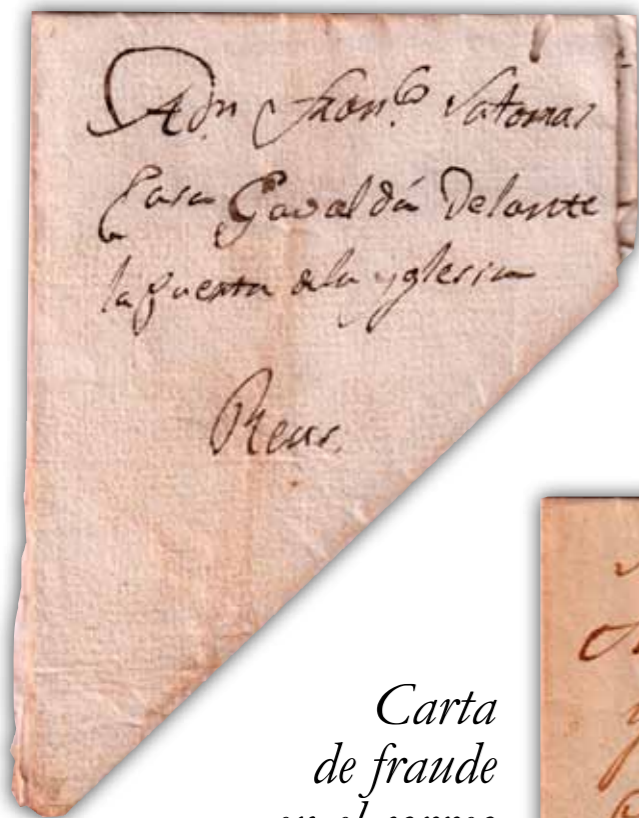 Adn Fran.co Satorras
Casa Gavaldá Delante
la puerta dela yglesia
Reus.
Carta
de fraude
en el correo